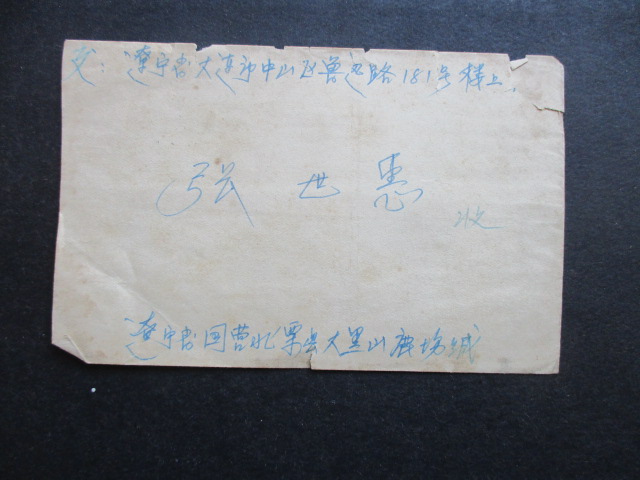 交：辽宁省大连市中山区鲁迅路181号楼上.
张世惠
收
辽宁省国营北票县大黑山鹿场城